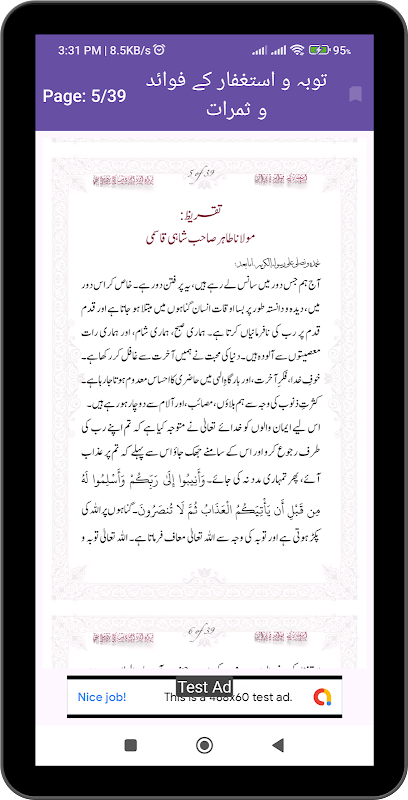 3:31 PM | 8.5KB/s
95%
Page: 5/39
توبہ و استغفار کے فوائد
و ثمرات
5 of 39
تقریظ:
مولانا طاہر صاحب شاہی قاسمی
آج ہم جس دور میں سانس لے رہے ہیں، یہ پر فتن دور ہے۔ خاص کر اس دور
میں، دیدہ و دانستہ طور پر بسا اوقات انسان گناہوں میں مبتلا ہو جاتا ہے اور قدم
قدم پر رب کی نافرمانیاں کرتا ہے۔ ہماری صبح، ہماری شام، اور ہماری رات
معصیتوں سے آلودہ ہیں۔ دنیا کی محبت نے ہمیں آخرت سے غافل کر رکھا ہے۔
خوفِ خدا، فکرِ آخرت، اور بارگاہِ الٰہی میں حاضری کا احساس معدوم ہوتا جا رہا ہے۔
کثرتِ ذنوب کی وجہ سے ہم بلاؤں، مصائب، اور آلام سے دوچار ہو رہے ہیں۔
اس لیے ایمان والوں کو خدائے تعالیٰ نے متوجہ کیا ہے کہ تم اپنے رب کی
طرف رجوع کرو اور اس کے سامنے جھک جاؤ اس سے پہلے کہ تم پر عذاب
آئے، پھر تمہاری مدد نہ کی جائے۔ وَأَنِيبُوا إِلَىٰ رَبِّكُمْ وَأَسْلِمُوا لَهُ
مِن قَبْلِ أَن يَأْتِيَكُمُ الْعَذَابُ ثُمَّ لَا تُنصَرُونَ۔ گناہوں پر اللہ کی
پکڑ ہوتی ہے اور توبہ کی وجہ سے اللہ تعالیٰ معاف فرماتا ہے۔ اللہ تعالیٰ توبہ و
6 of 39
Test Ad
Nice job!
This is a 468x60 test ad.